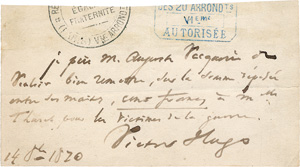 ÉGAL
FRATERNITÉ
DES 20 ARRONDts
VIeme
AUTORISÉE
je prie M. Auguste Vacquerie de
vouloir bien remettre, sur la somme déposée
entre ses mains, cent francs à M.
pour les victimes de la guerre.
Victor Hugo
1870